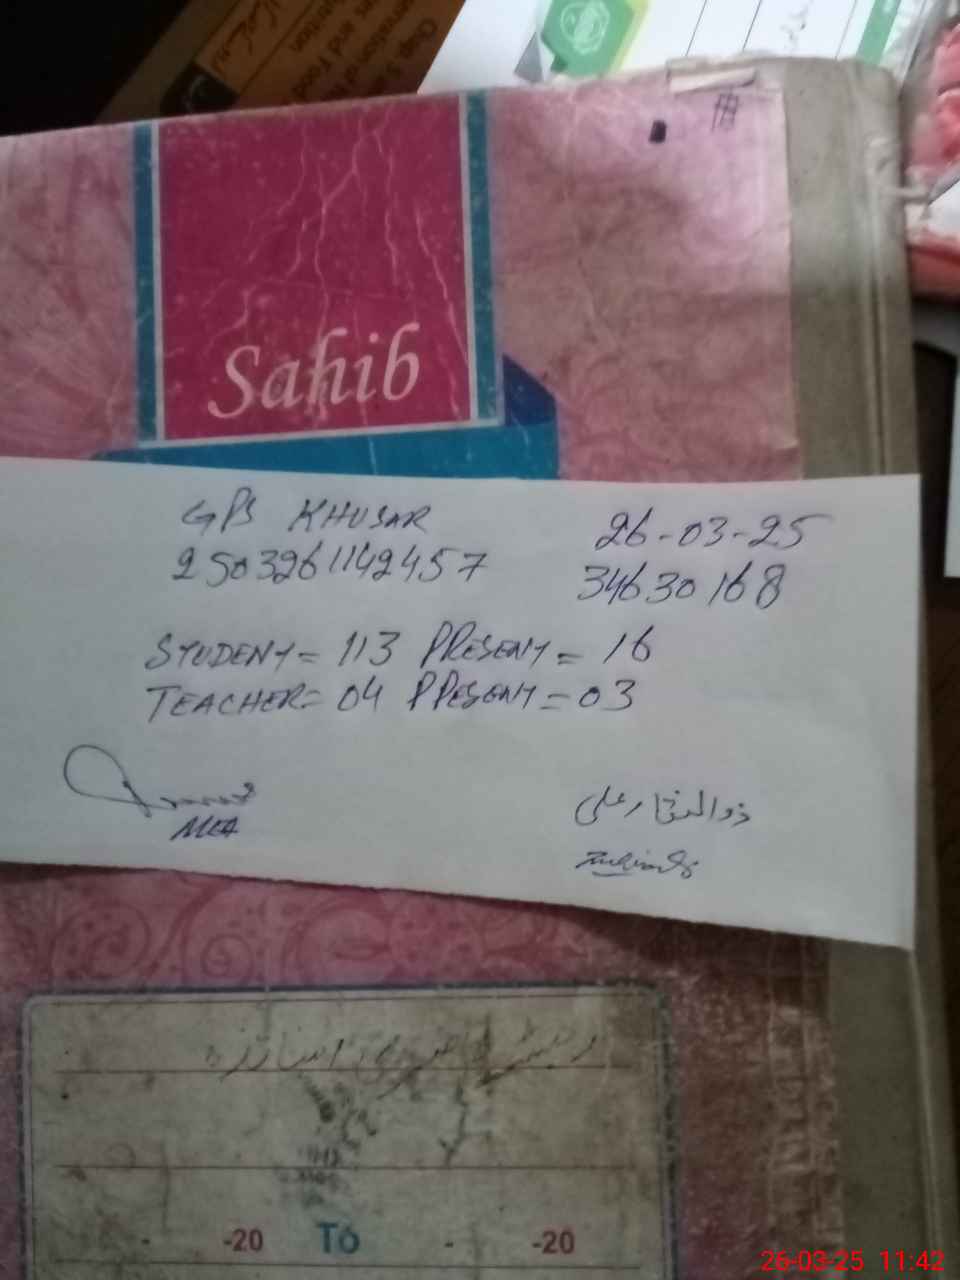 Sahib
GPS KHUSAR 26-03-25
2503261142457 34630168
STUDENT = 113 PRESENT = 16
TEACHER = 04 PRESENT = 03
MEA ذوالفقار علی
رجسٹر حاضری اساتذہ
- -20 To - -20
26-03-25 11:42